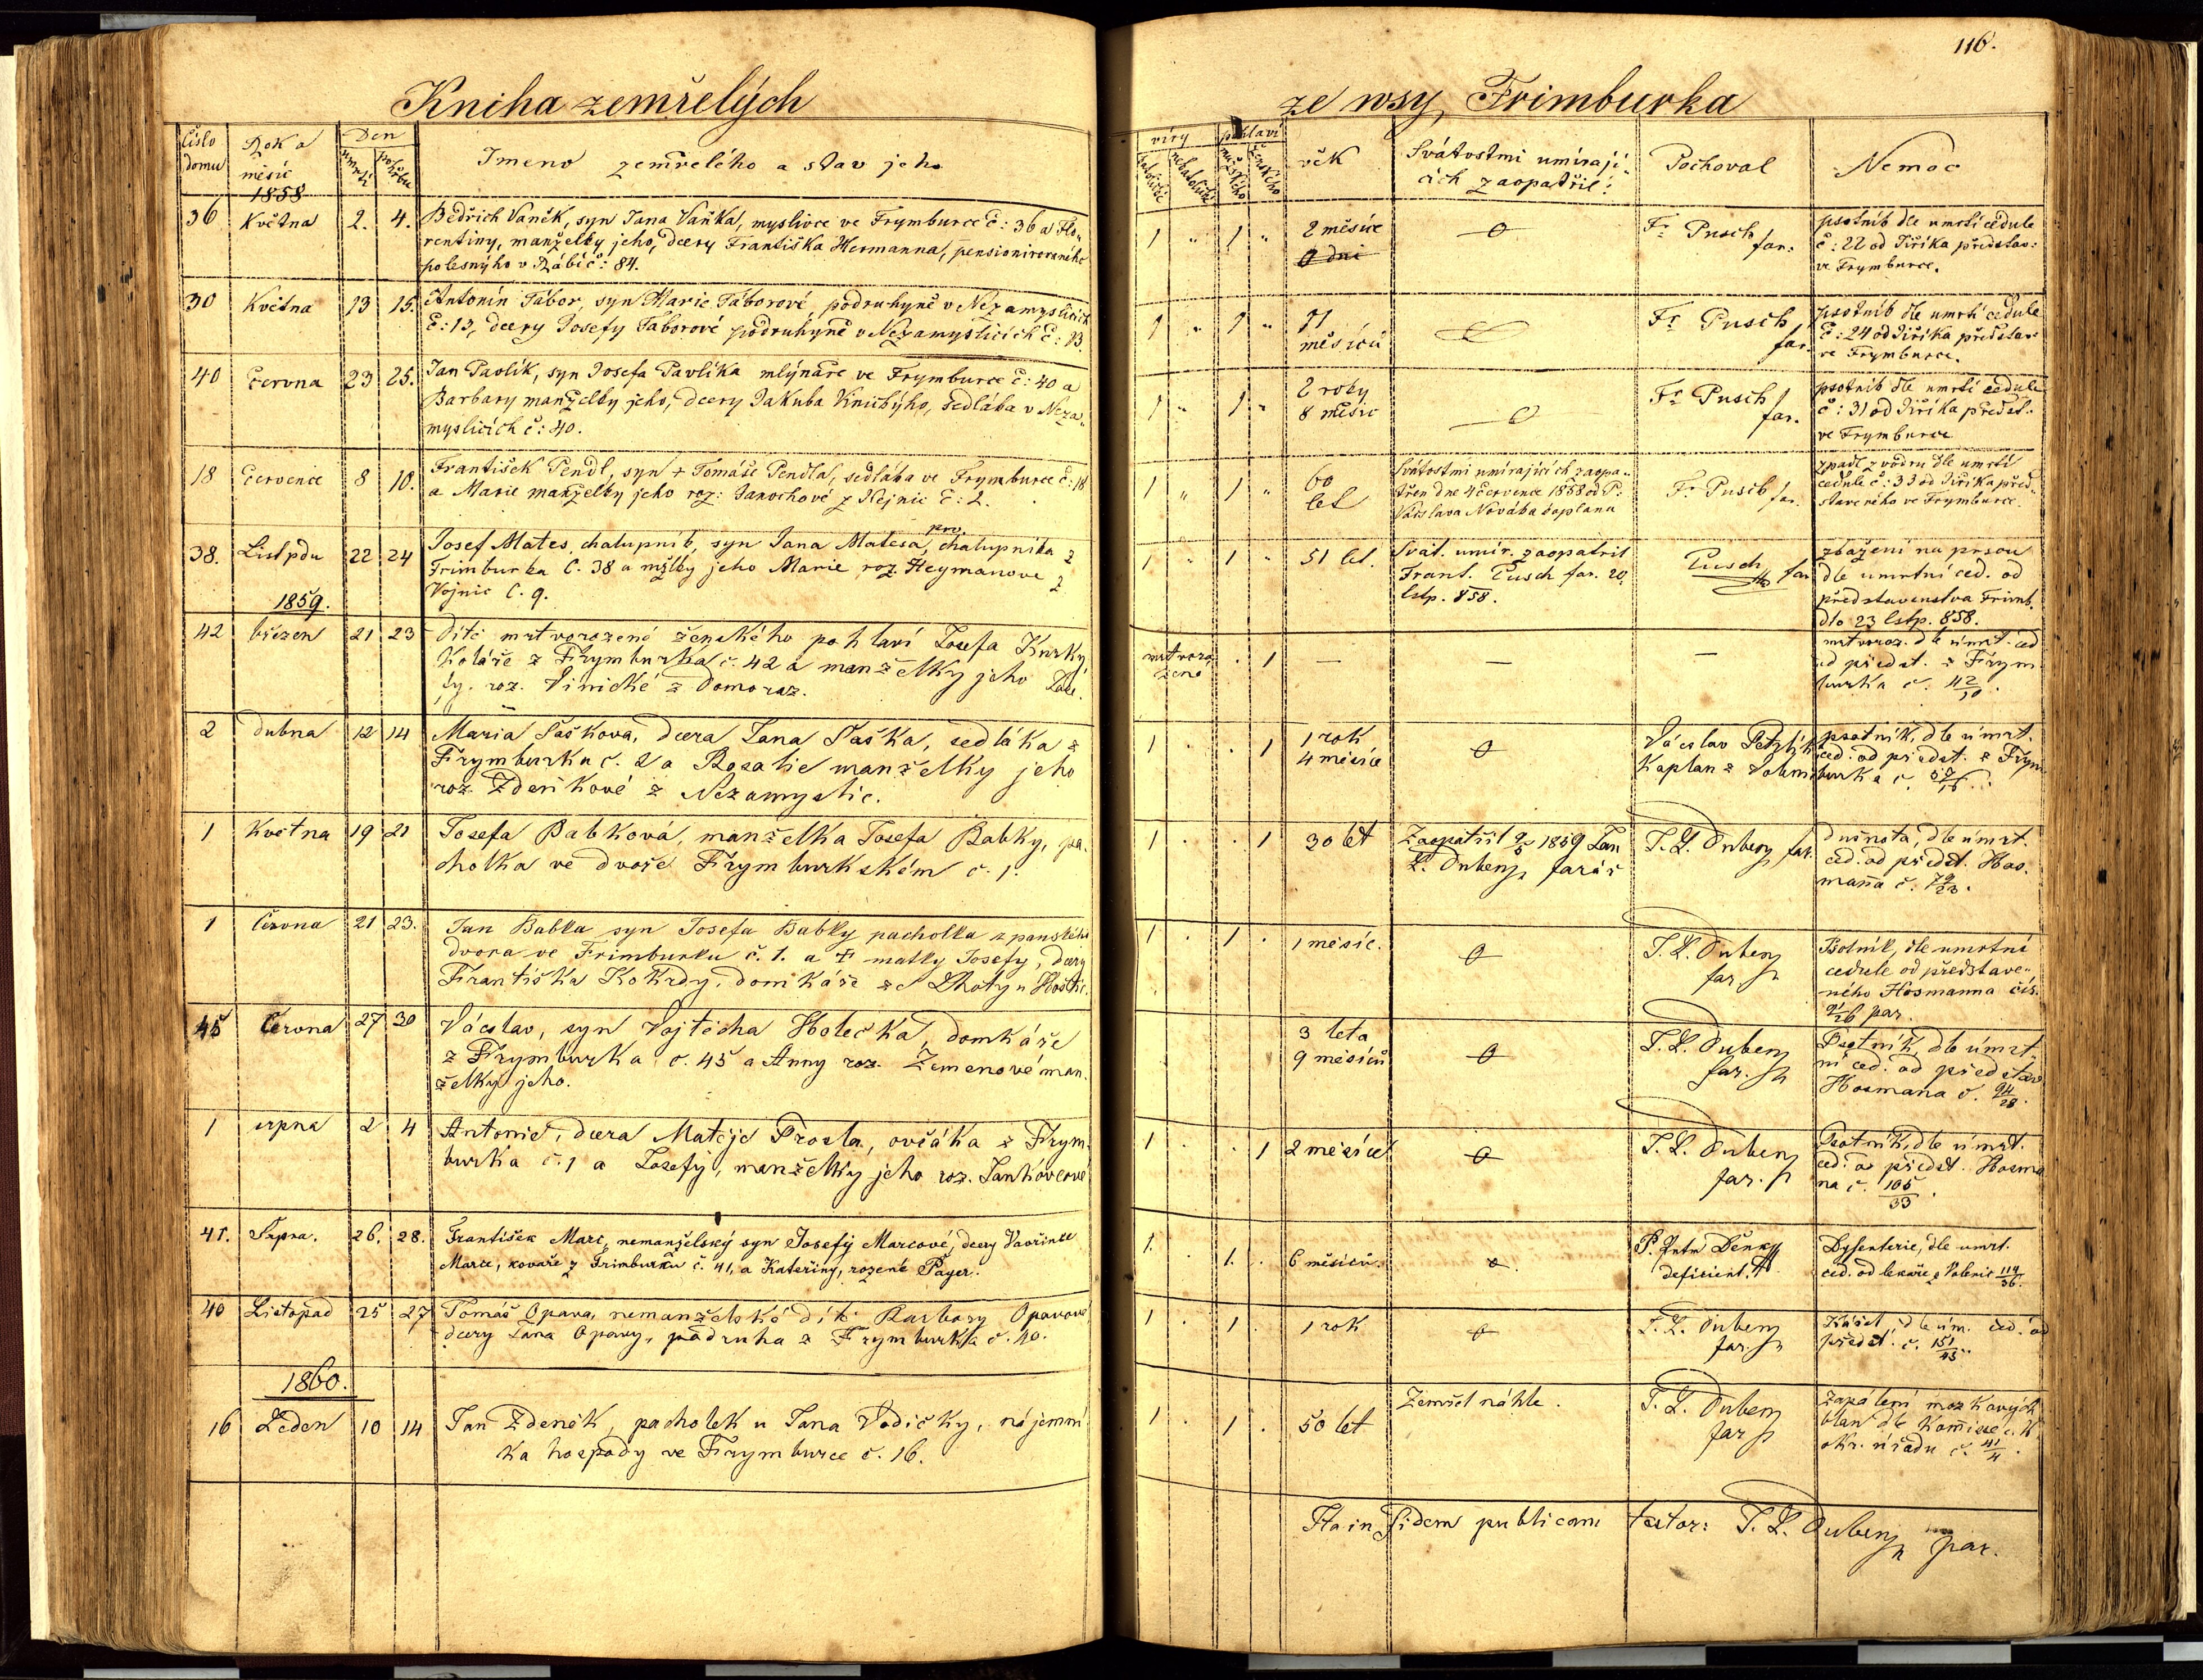 116.
Kniha zemřelých
ze wsy Frimburka
číslo domu
Rok a měsíc
Den
úmrtí
pohřbu
Imeno zemřelého a stav jeho
víry
katolické
nekatolické
pohlaví
mužského
ženského
věk
Svátostmi umírají
cích zaopatřil:
Pochoval
Nemoc
1858
36 Května 2. 4. Bedřich Vaněk, syn Jana Vaňka, myslivce ve Frymburce č: 36 a Flo„
rentiny, manželky jeho, dcery Františka Hermanna, pensionirovaného
polesnýho v Rábí č: 84.
1 „ 1 „ 2 měsíce
0 dni
0
Fr Pusch
far:
psotník dle umrtí cedule
č: 22 od Jiříka představ:
ve Frymburce.
30 Května 13 15. Antonín Tábor, syn Marie Táborové, podruhyně v Nezamyslicích
č: 13, dcery Josefy Táborové podruhyně v Nezamyslicích č: 13.
1 „ 1 „ 11
měsíců
0
Fr Pusch
far.
psotník dle umrtí cedule
č: 24 od Jiříka představ:
ve Frymburce.
40 Června 23 25. Jan Pavlík, syn Josefa Pavlíka mlynáře ve Frymburce č: 40 a
Barbary manželky jeho, dcery Jakuba Knižýho, sedláka v Neza„
myslicích č: 40.
1 „ 1 „ 2 roky
8 měsíc
0
Fr Pusch
far.
psotník dle umrtí cedule
č: 31 od Jiříka předst.
ve Frymburce
18 Července 8 10. František Pendl, syn + Tomáše Pendla, sedláka ve Frymburce č: 18
a Marie manželky jeho roz: Janochové z Hejnic č: 2.
1 „ 1 „ 60
let
Svátostmi umírajících zaopa„
třen dne 4 července 1858 od P:
Václava Nováka kaplana
Fr Pusch far.
zpadl z vodru dle umrtí
cedule č: 33 od Jiříka před„
staveného ve Frymburce.
38. Listpdu 22 24 Josef Mates, chalupník, syn Jana Matesa, chalupníka z
Frimburka č. 38 a mžlky jeho Marie roz. Heymanove z
Vojnic č. 9.
1 „ 1 „ 51 let.
Svát. umír. zaopatril
Frant. Pusch far. 20
lstp. 858.
Pusch far
zbažení na prsou
dle umrtní ced. od
představenstva Frimb.
dto 23 lstp. 858.
1859.
42 březen 21 23 Dítě mrtvorozené ženského pohlaví Josefa Kurky,
Koláře z Frymburka č. 42 a manželky jeho Jose.
fy. roz. Vinické z Domoraz.
mrtvoro
zeno
. 1 — — —
mrtvoroz. dle úmrt. ced
od předst. z Frym
burka č. 42/10.
2 dubna 12 14 Maria Saskova, dcera Jana Saska, sedláka z
Frymburku č. 2 a Rosalie manželky jeho
roz. Zdeňkové z Nezamyslic.
1 . . 1 1 rok
4 měsíce
0
Václav Petzlík
Kaplan z Volenic
psotník, dle úmrt.
ced. od předst. z Frym
burka č. 57/16.
1 Května 19 21 Josefa Babková, manželka Josefa Babky, pa.
cholka ve dvoře Frymburkském č. 1.
1 . . 1 30 let
Zaopatřil 9/5 1859 Jan
L. Dubenz farář
J. L. Dubenz far.
dušnota, dle úmrt.
ced. od předst. Hos.
mana č. 79/23.
1 Června 21 23. Jan Babka syn Josefa Babky pacholka z panského
dvora ve Frimburku č. 1. a + matky Josefy, dcery
Františka Kokrdy, domkáře ze Lhoty u Hoštic.
1 . 1 . 1 měsíc.
0
J. L. Dubenz
far.
Psotník, dle umrtní
cedule od představe„
ného Hosmanna čís.
91/26 par.
45 Června 27 30 Václav, syn Vojtěcha Holečka, domkáře
z Frymburka č. 45 a Anny roz. Zemenové man.
želky jeho.
3 leta
9 měsíců
0
J. L. Dubenz
far.
Psotník, dle úmrt
ní ced. od představ
Hosmana č. 94/28.
1 srpna 2 4 Antonie, dcera Matěje Prosla, ovčáka z Frym
burka č. 1 a Josefy, manželky jeho roz. Jankovcové
1 . . 1 2 měsíce
0
J. L. Dubenz
far.
Psotník, dle úmrt.
ced. od předst. Hosma
na č. 105/33.
41. Srpna. 26. 28. František Marc, nemanželský syn Josefy Marcové, dcery Vavřince
Marce, kováře z Frimburku č. 41, a Kateřiny, rozené Payer.
1. . 1. . 6 měsíců.
0.
P. Antn Děnk
deficient.
Dysenterie, dle umrt.
ced. od lékaře z Volenic 119/36.
40 Listopad 25 27 Tomáš Opava, nemanželské dítě Barbory Opavové
dcery Jana Opavy, podruha z Frymburka č. 40.
1 . 1 . 1 rok
0
J. L. Dubenz
far.
Kašel, dle úm. ced. od
předst. č. 151/43.
1860.
16 Leden 10 14 Jan Zdeněk, pacholek u Jana Vodičky, nájemní
ka hospody ve Frymburce č. 16.
1 . 1 . 50 let
Zemřel náhle.
J. L. Dubenz
far
Zapálení mozkových
blan dle Komisse c. k.
okr. úřadu č. 41/4.
Ita in fidem publicam testor: J. L. Dubenz par.